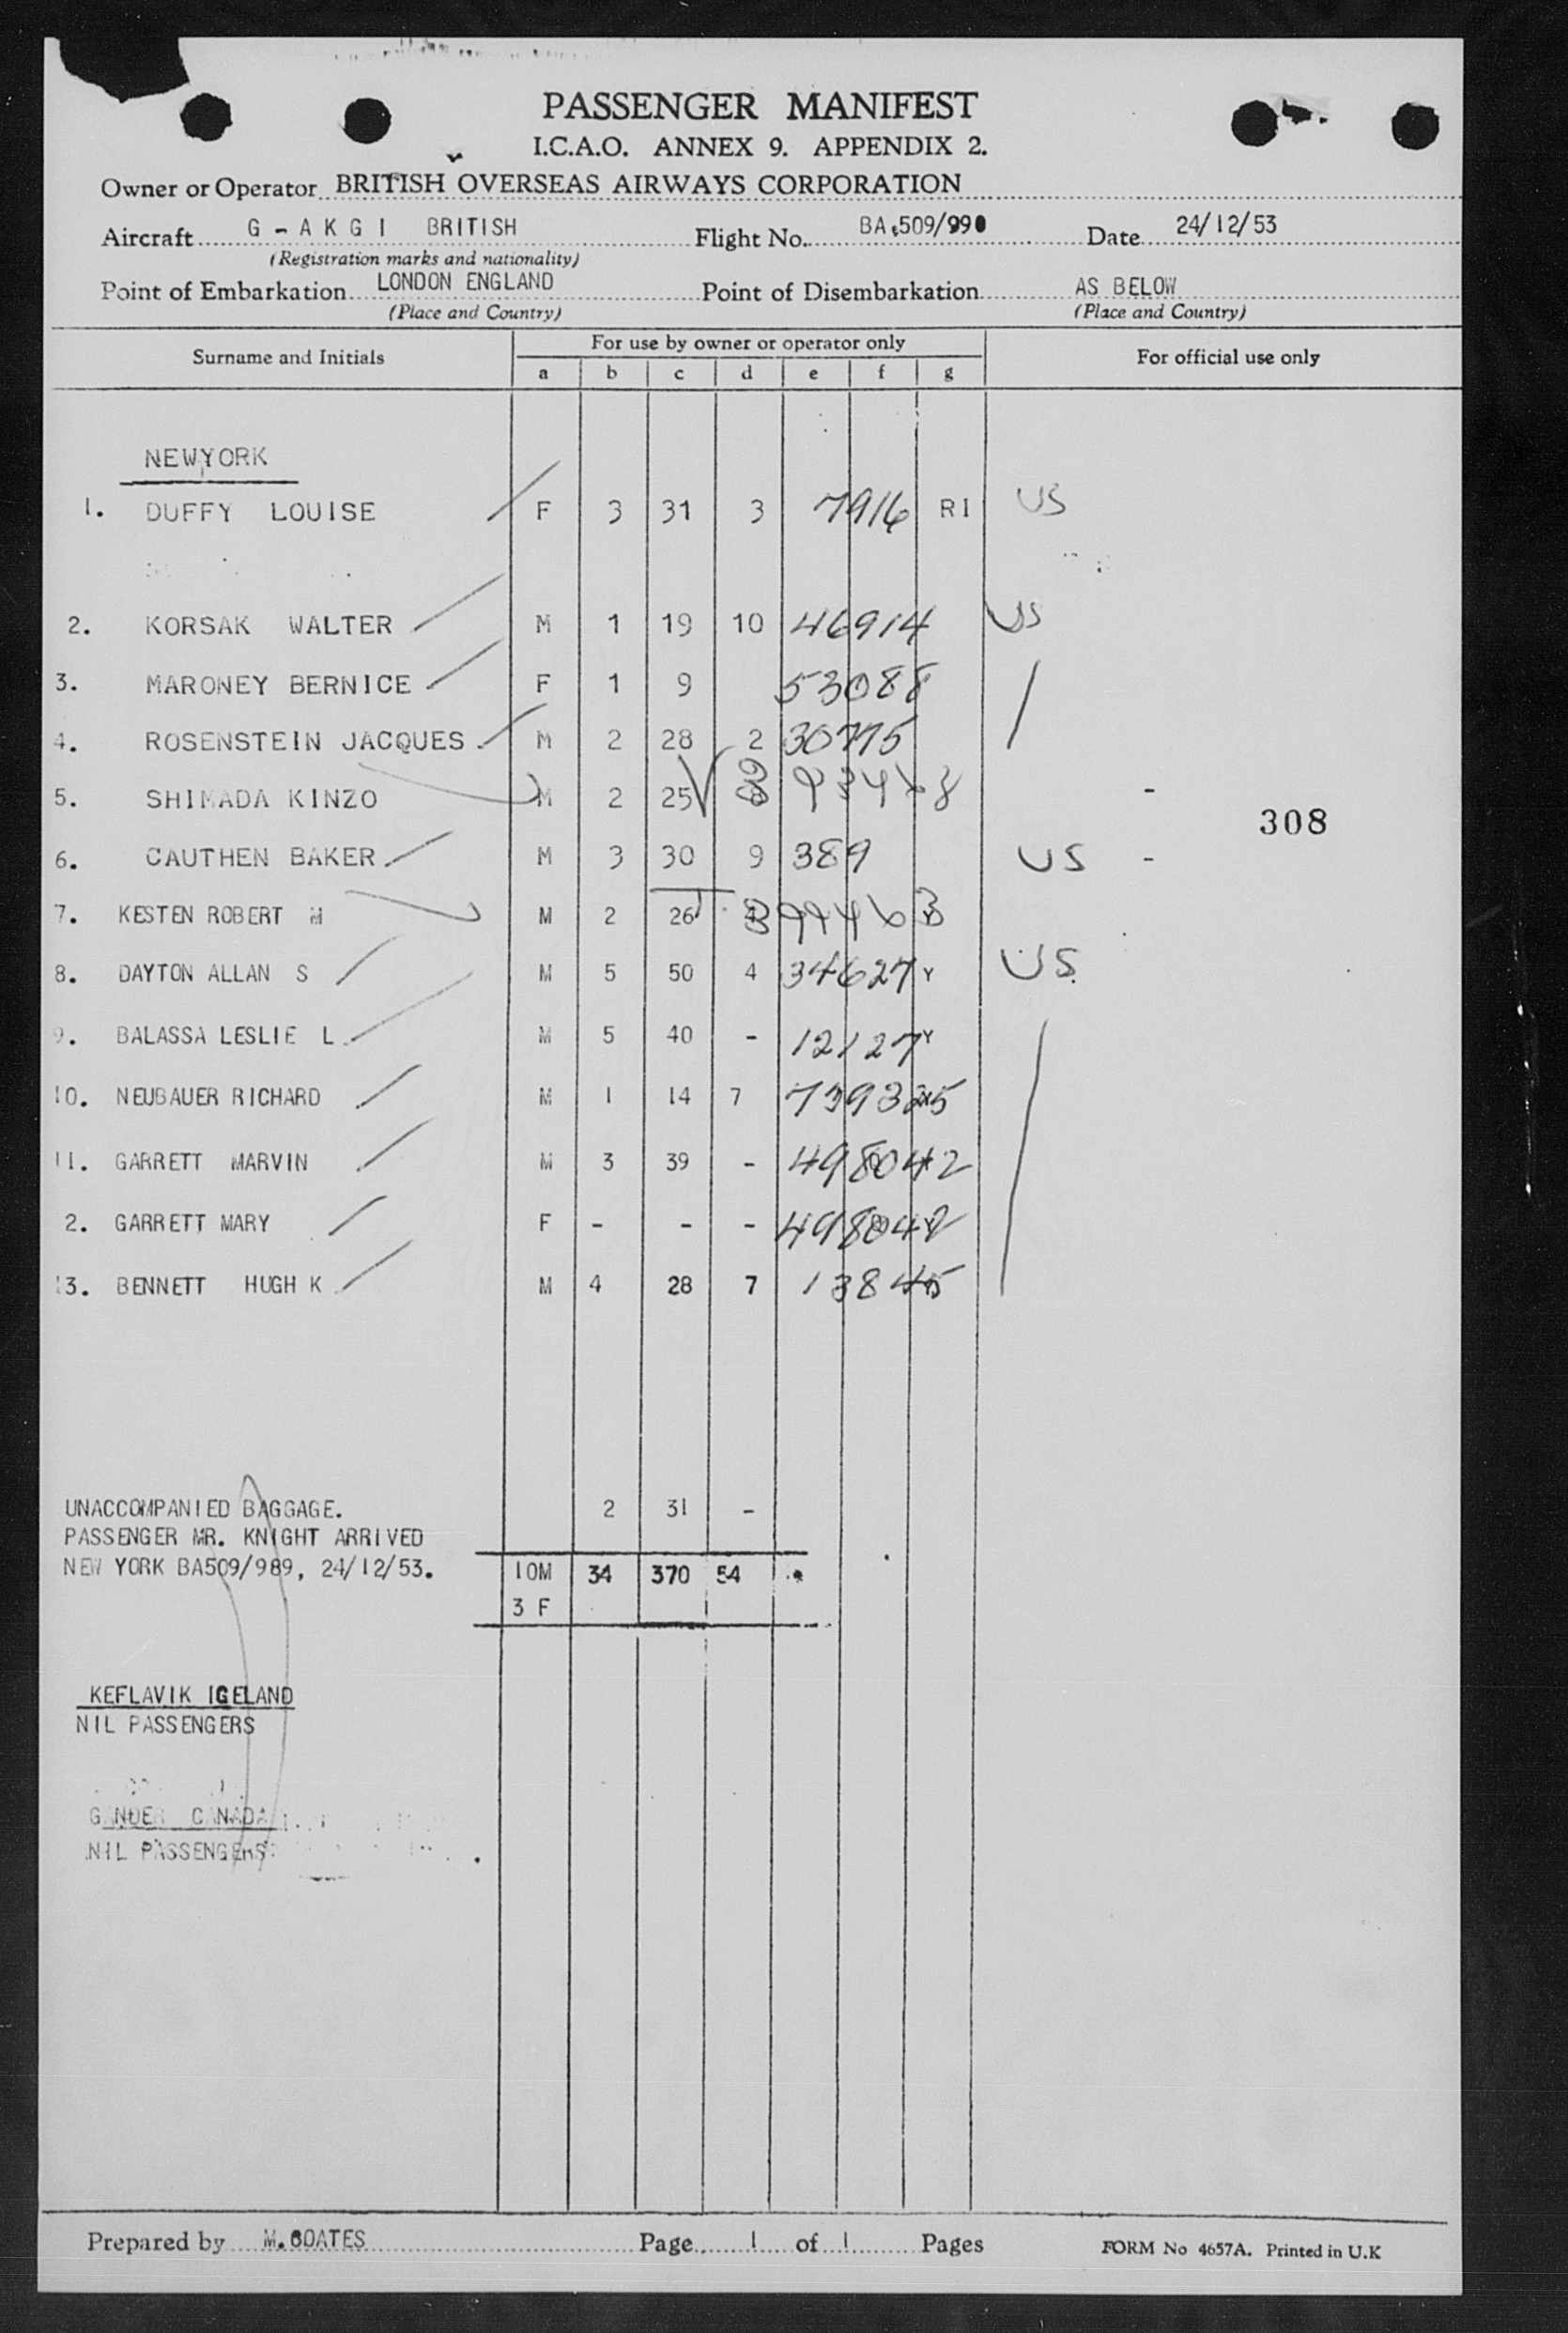 PASSENGER MANIFEST
I.C.A.O. ANNEX 9. APPENDIX 2.
Owner or Operator BRITISH OVERSEAS AIRWAYS CORPORATION
Aircraft G - A K G I BRITISH Flight No. BA.509/990 Date 24/12/53
(Registration marks and nationality)
Point of Embarkation LONDON ENGLAND Point of Disembarkation AS BELOW
(Place and Country) (Place and Country)
Surname and Initials For use by owner or operator only For official use only
a b c d e f g
NEWYORK
1. DUFFY LOUISE F 3 31 3 7916 R1 US
2. KORSAK WALTER M 1 19 10 46914 US
3. MARONEY BERNICE F 1 9 53088
4. ROSENSTEIN JACQUES M 2 28 2 30775
5. SHIMADA KINZO M 2 25 -
308
6. CAUTHEN BAKER M 3 30 9 389 US -
7. KESTEN ROBERT M M 2 26
8. DAYTON ALLAN S M 5 50 4 34627 Y US
9. BALASSA LESLIE L M 5 40 - 12127 Y
10. NEUBAUER RICHARD M 1 14 7
11. GARRETT MARVIN M 3 39 - 498042
2. GARRETT MARY F - - - 498042
13. BENNETT HUGH K M 4 28 7 13845
UNACCOMPANIED BAGGAGE. 2 31 -
PASSENGER MR. KNIGHT ARRIVED
NEW YORK BA509/989, 24/12/53. 10M 34 370 54
3 F
KEFLAVIK ICELAND
NIL PASSENGERS
GANDER CANADA
NIL PASSENGERS
Prepared by M. COATES Page 1 of 1 Pages FORM No 4657A. Printed in U.K